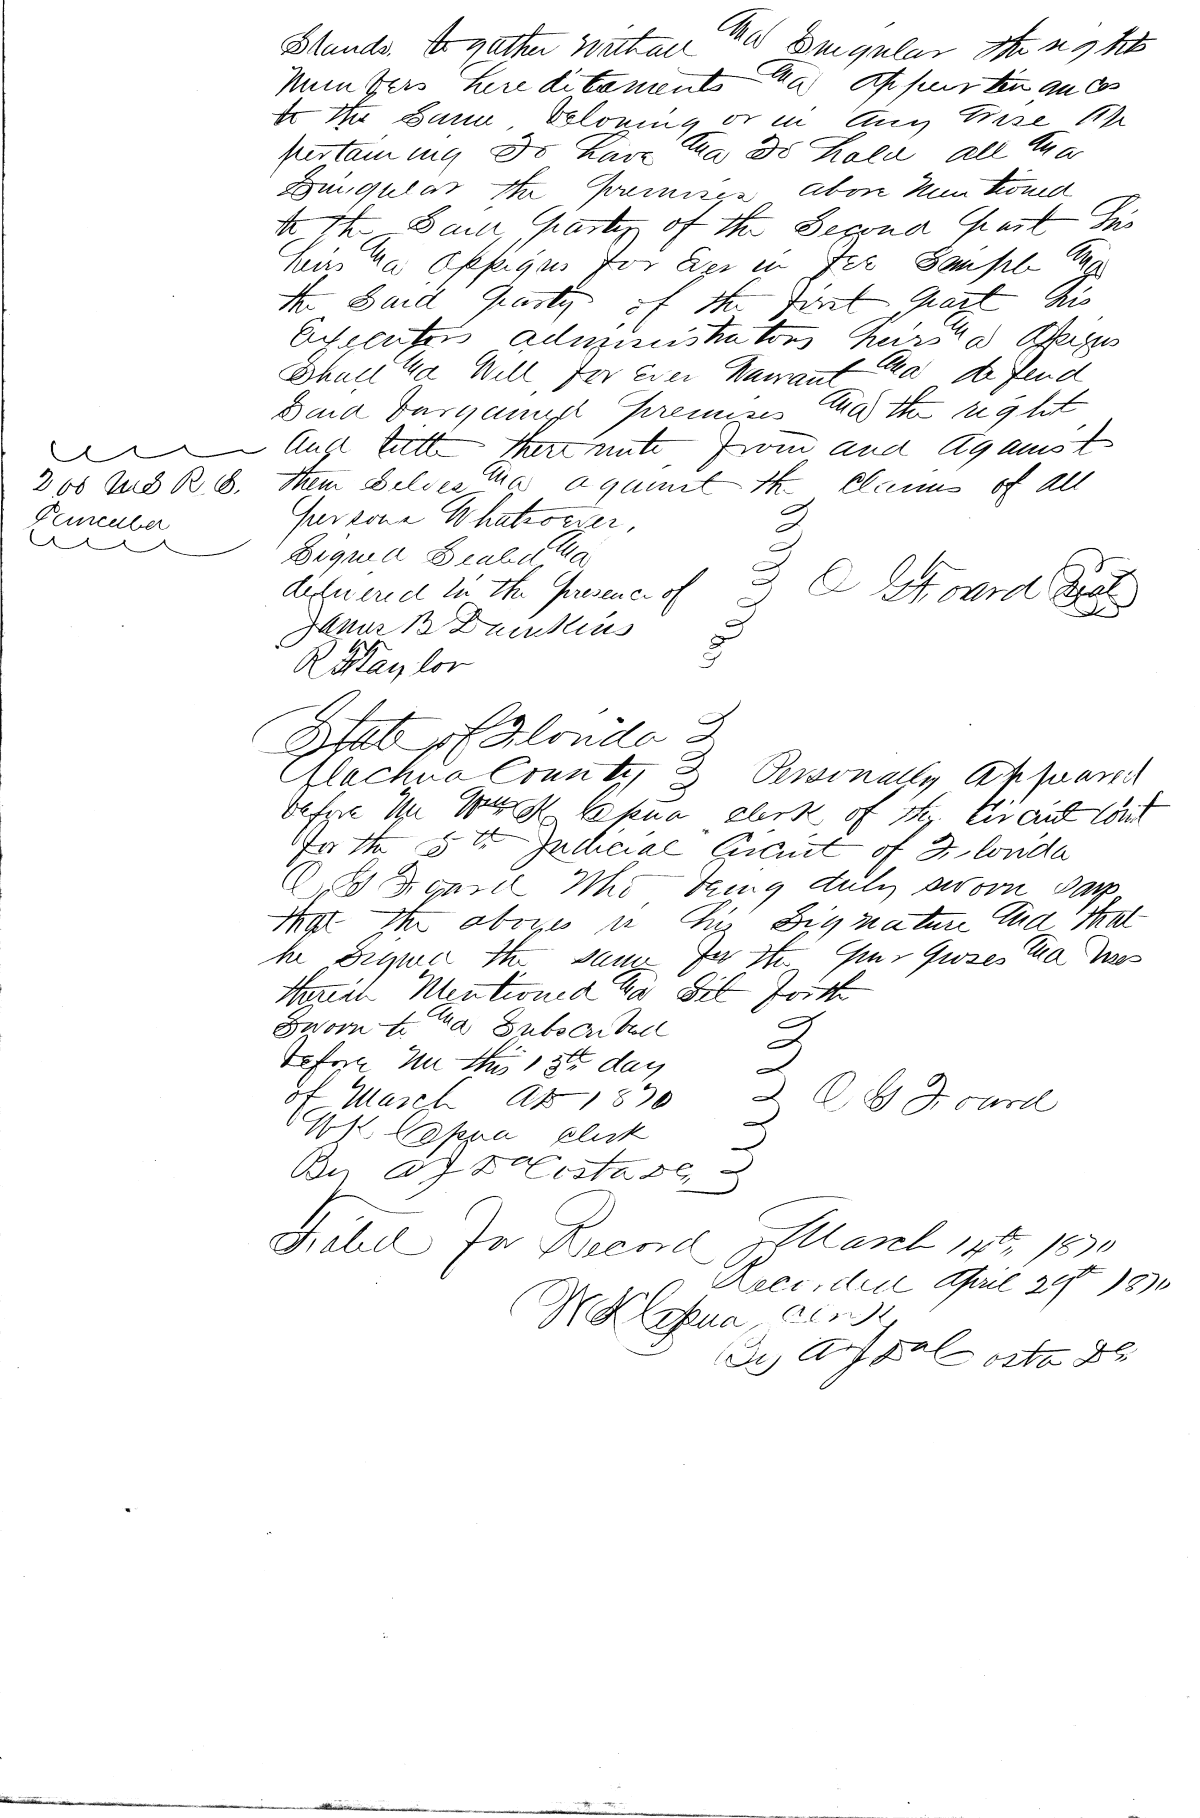 Stands. to gather with all and Singular the rights
Members hereditaments and appertinances
to the Same beloning or in any wise Ap
pertaining To have and To hold all and
Singular the premises above Mentioned
to the Said party of the Second part his
heirs and assigns for Ever in fee Simple and
the Said party of the first part his
Executors administrators heirs and assigns
Shall and Will for Ever Warrant and defend
Said bargained premises and the right
and tittle there unto from and against
200 R. S.
them Selves and against the Claims of all
persons Whatsoever,
Signed Sealed and
delivered in the presence of
C G Foard Seal
James B Dawkins
R F Taylor
State of Florida
Alachua County Personally Appeared
before me Wm K Cepua clerk of the Circuit Court
for the 5th Judicial Circuit of Florida
C G Foard Who being duly sworn says
that the above is his Signature and that
he Signed the same for the purposes and uses
therein Mentioned and Set forth
Sworn to and Subscribed
before me this 13th day
of March AD 1870
C G Foard
W K Cepua clerk
By A J DaCosta DC,
Filed For Record March 14th, 1870
Recorded April 29th 1870
W K Cepua, Clerk,
By A J DaCosta DC.